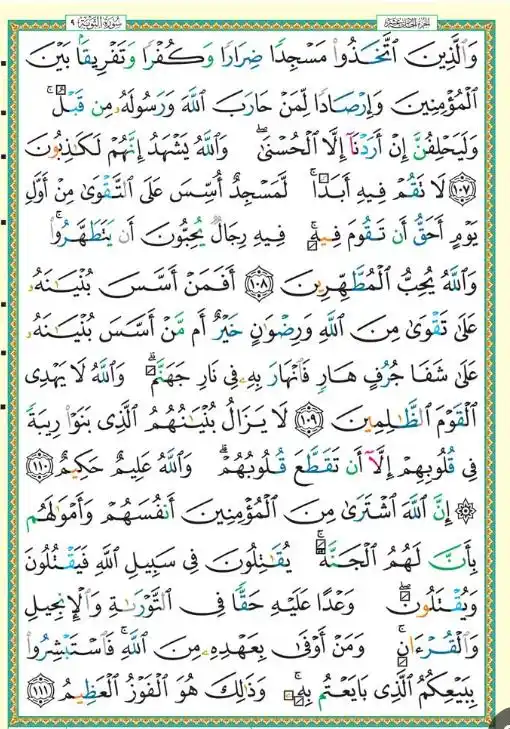 سُورَةُ التَّوْبَةِ ٩
الجزء الحادي عشر
وَٱلَّذِينَ ٱتَّخَذُوا۟ مَسْجِدًا ضِرَارًا وَكُفْرًا وَتَفْرِيقًۢا بَيْنَ
ٱلْمُؤْمِنِينَ وَإِرْصَادًا لِّمَنْ حَارَبَ ٱللَّهَ وَرَسُولَهُۥ مِن قَبْلُ ۚ
وَلَيَحْلِفُنَّ إِنْ أَرَدْنَآ إِلَّا ٱلْحُسْنَىٰ ۖ وَٱللَّهُ يَشْهَدُ إِنَّهُمْ لَكَـٰذِبُونَ
١٠٧ لَا تَقُمْ فِيهِ أَبَدًا ۚ لَّمَسْجِدٌ أُسِّسَ عَلَى ٱلتَّقْوَىٰ مِنْ أَوَّلِ
يَوْمٍ أَحَقُّ أَن تَقُومَ فِيهِ ۚ فِيهِ رِجَالٌ يُحِبُّونَ أَن يَتَطَهَّرُوا۟ ۚ
وَٱللَّهُ يُحِبُّ ٱلْمُطَّهِّرِينَ ١٠٨ أَفَمَنْ أَسَّسَ بُنْيَـٰنَهُۥ
عَلَىٰ تَقْوَىٰ مِنَ ٱللَّهِ وَرِضْوَٰنٍ خَيْرٌ أَم مَّنْ أَسَّسَ بُنْيَـٰنَهُۥ
عَلَىٰ شَفَا جُرُفٍ هَارٍ فَٱنْهَارَ بِهِۦ فِى نَارِ جَهَنَّمَ ۗ وَٱللَّهُ لَا يَهْدِى
ٱلْقَوْمَ ٱلظَّـٰلِمِينَ ١٠٩ لَا يَزَالُ بُنْيَـٰنُهُمُ ٱلَّذِى بَنَوْا۟ رِيبَةً
فِى قُلُوبِهِمْ إِلَّآ أَن تَقَطَّعَ قُلُوبُهُمْ ۗ وَٱللَّهُ عَلِيمٌ حَكِيمٌ ١١٠
۞ إِنَّ ٱللَّهَ ٱشْتَرَىٰ مِنَ ٱلْمُؤْمِنِينَ أَنفُسَهُمْ وَأَمْوَٰلَهُم
بِأَنَّ لَهُمُ ٱلْجَنَّةَ ۚ يُقَـٰتِلُونَ فِى سَبِيلِ ٱللَّهِ فَيَقْتُلُونَ
وَيُقْتَلُونَ ۖ وَعْدًا عَلَيْهِ حَقًّا فِى ٱلتَّوْرَىٰةِ وَٱلْإِنجِيلِ
وَٱلْقُرْءَانِ ۚ وَمَنْ أَوْفَىٰ بِعَهْدِهِۦ مِنَ ٱللَّهِ ۚ فَٱسْتَبْشِرُوا۟
بِبَيْعِكُمُ ٱلَّذِى بَايَعْتُم بِهِۦ ۚ وَذَٰلِكَ هُوَ ٱلْفَوْزُ ٱلْعَظِيمُ ١١١